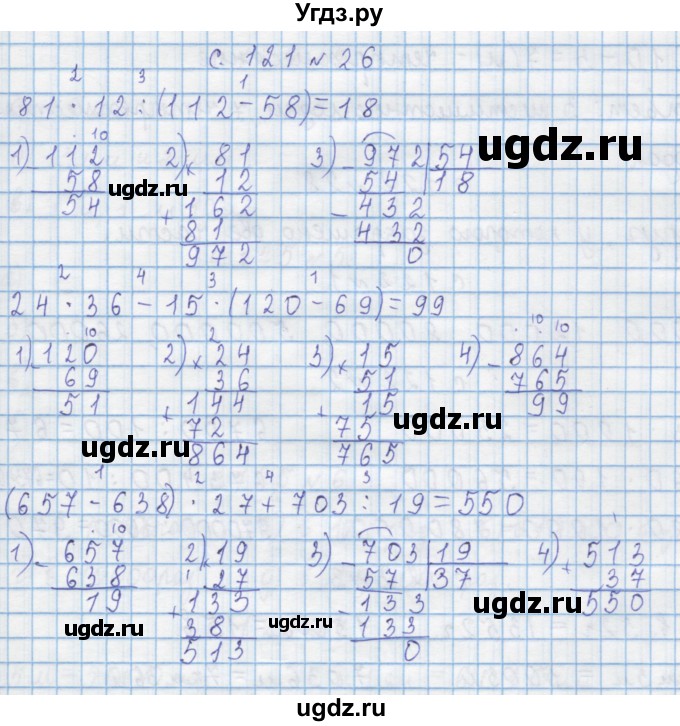 Угдз.ру
с. 121 № 26
2 3 1
81 · 12 : (112 - 58) = 18
1) 112 2) 81 3) 972 | 54
- 58 × 12 - 54 | 18
54 + 162 - 432
81 432
972 0
2 4 3 1
24 · 36 - 15 · (120 - 69) = 99
1) 120 2) 24 3) 15 4) 864
- 69 × 36 × 51 - 765
51 + 144 + 15 99
72 75
864 765
1 2 4 3
(657 - 638) · 27 + 703 : 19 = 550
1) 657 2) 19 3) 703 | 19 4) 513
- 638 × 27 - 57 | 37 + 37
19 + 133 - 133 550
38 133
513 0
ugdz.ru
ugdz.ru
ugdz.ru
ugdz.ru
ugdz.ru
ugdz.ru
ugdz.ru